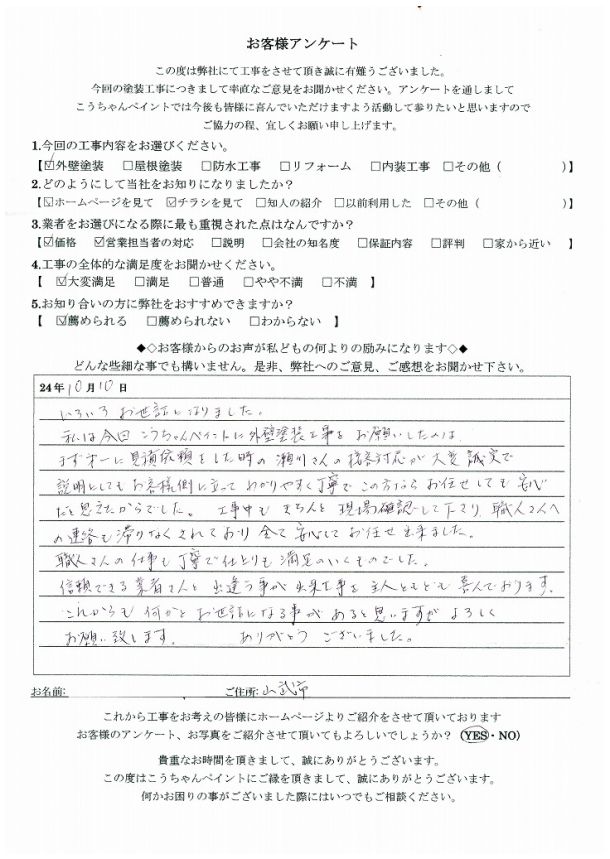 お客様アンケート
この度は弊社にて工事をさせて頂き誠に有難うございました。
今回の塗装工事につきまして率直なご意見をお聞かせください。アンケートを通しまして
こうちゃんペイントでは今後も皆様に喜んでいただけますよう活動して参りたいと思いますので
ご協力の程、宜しくお願い申し上げます。
1.今回の工事内容をお選びください。
【☑外壁塗装 □屋根塗装 □防水工事 □リフォーム □内装工事 □その他（ ）】
2.どのようにして当社をお知りになりましたか？
【☑ホームページを見て ☑チラシを見て □知人の紹介 □以前利用した □その他（ ）】
3.業者をお選びになる際に最も重視された点はなんですか？
【☑価格 ☑営業担当者の対応 □説明 □会社の知名度 □保証内容 □評判 □家から近い 】
4.工事の全体的な満足度をお聞かせください。
【 ☑大変満足 □満足 □普通 □やや不満 □不満 】
5.お知り合いの方に弊社をおすすめできますか？
【 ☑薦められる □薦められない □わからない 】
◆◇お客様からのお声が私どもの何よりの励みになります◇◆
どんな些細な事でも構いません。是非、弊社へのご意見、ご感想をお聞かせ下さい。
24年10月10日
いろいろ お世話になりました。
私は今回 こうちゃんペイントに外壁塗装工事を お願いしたのは
まず第一に見積依頼をした時の 瀬川さんの接客対応が 大変 誠実で
説明としてもお客様側に立って わかりやすく丁寧で この方なら お任せしても 安心
だと思えたからでした。 工事中も きちんと 現場確認して下さり 職人さんへ
の連絡も滞りなくされており 全て 安心して お任せ出来ました。
職人さんの仕事も丁寧で仕上りも 満足のいくものでした。
信頼できる業者さんと 出逢う事が出来た事を 主人ともども 喜んでおります。
これからも 何かと お世話になる事が あると思いますが よろしく
お願い致します。 ありがとう ございました。
お名前: ご住所:山武市
これから工事をお考えの皆様にホームページよりご紹介をさせて頂いております
お客様のアンケート、お写真をご紹介させて頂いてもよろしいでしょうか？（YES・NO）
貴重なお時間を頂きまして、誠にありがとうございます。
この度はこうちゃんペイントにご縁を頂きまして、誠にありがとうございます。
何かお困りの事がございました際にはいつでもご相談ください。